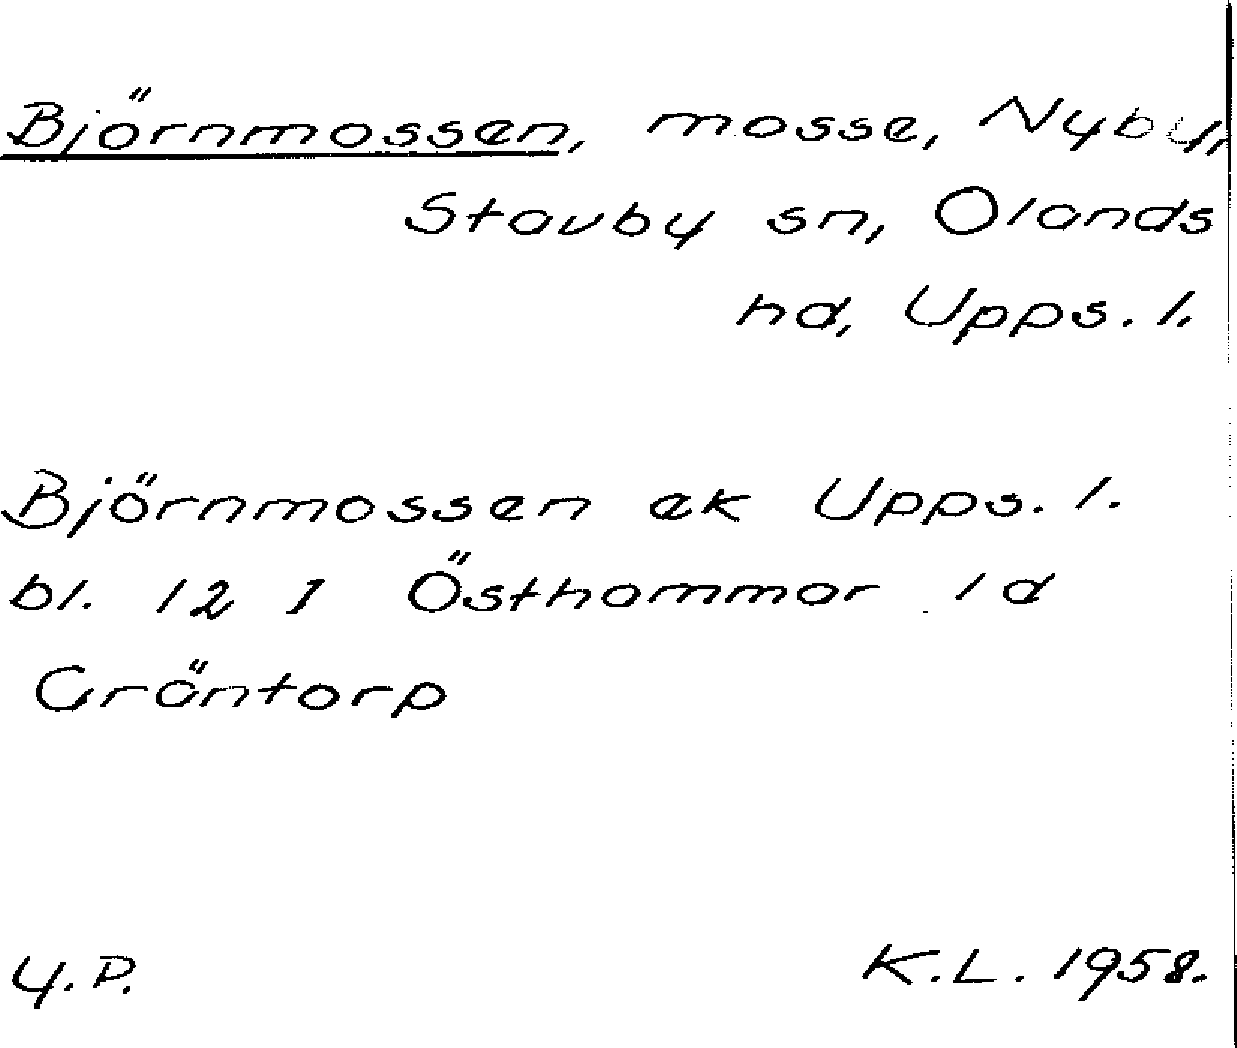 Björnmossen, mosse, Nyby,
Stavby sn, Olands
hd, Upps. l.
Björnmossen ek Upps. l.
bl. 12 I Östhammar 1d
Gräntorp
Y.P.
K.L. 1958.